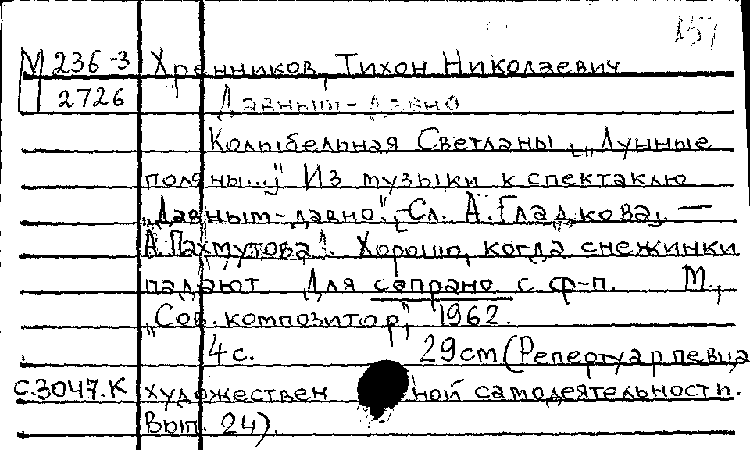 157
М 236-3 Хренников, Тихон Николаевич
2726 Давным-давно
Колыбельная Светланы „Лунные
поляны...” Из музыки к спектаклю
„Давным-давно”. Сл. А. Гладкова. —
А. Пахмутова. Хорошо, когда снежинки
падают Для сопрано с ф-п. М.,
„Сов. композитор”, 1962.
4 с. 29 cm (Репертуар певца
с.3047.К художествен ной самодеятельности.
Вып. 24).